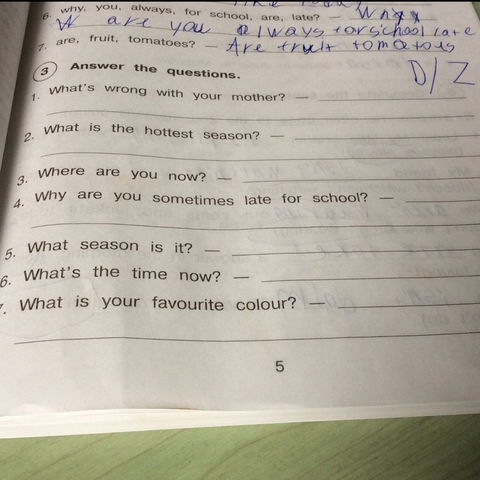 6. why, you, always, for school, are, late? — Why
are you always for school late
7. are, fruit, tomatoes? — Are fruit tomatoes
3 Answer the questions.
D/Z
1. What's wrong with your mother? —
2. What is the hottest season? —
3. Where are you now? —
4. Why are you sometimes late for school? —
5. What season is it? —
6. What's the time now? —
7. What is your favourite colour? —
5